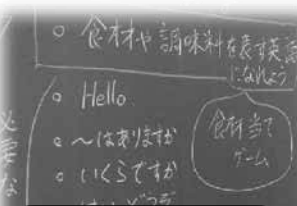 ○ 食材や調味料を表す英語
になれよう
○ Hello
○ 〜はありますか
○ いくらですか
食材当て
ゲーム
必要な